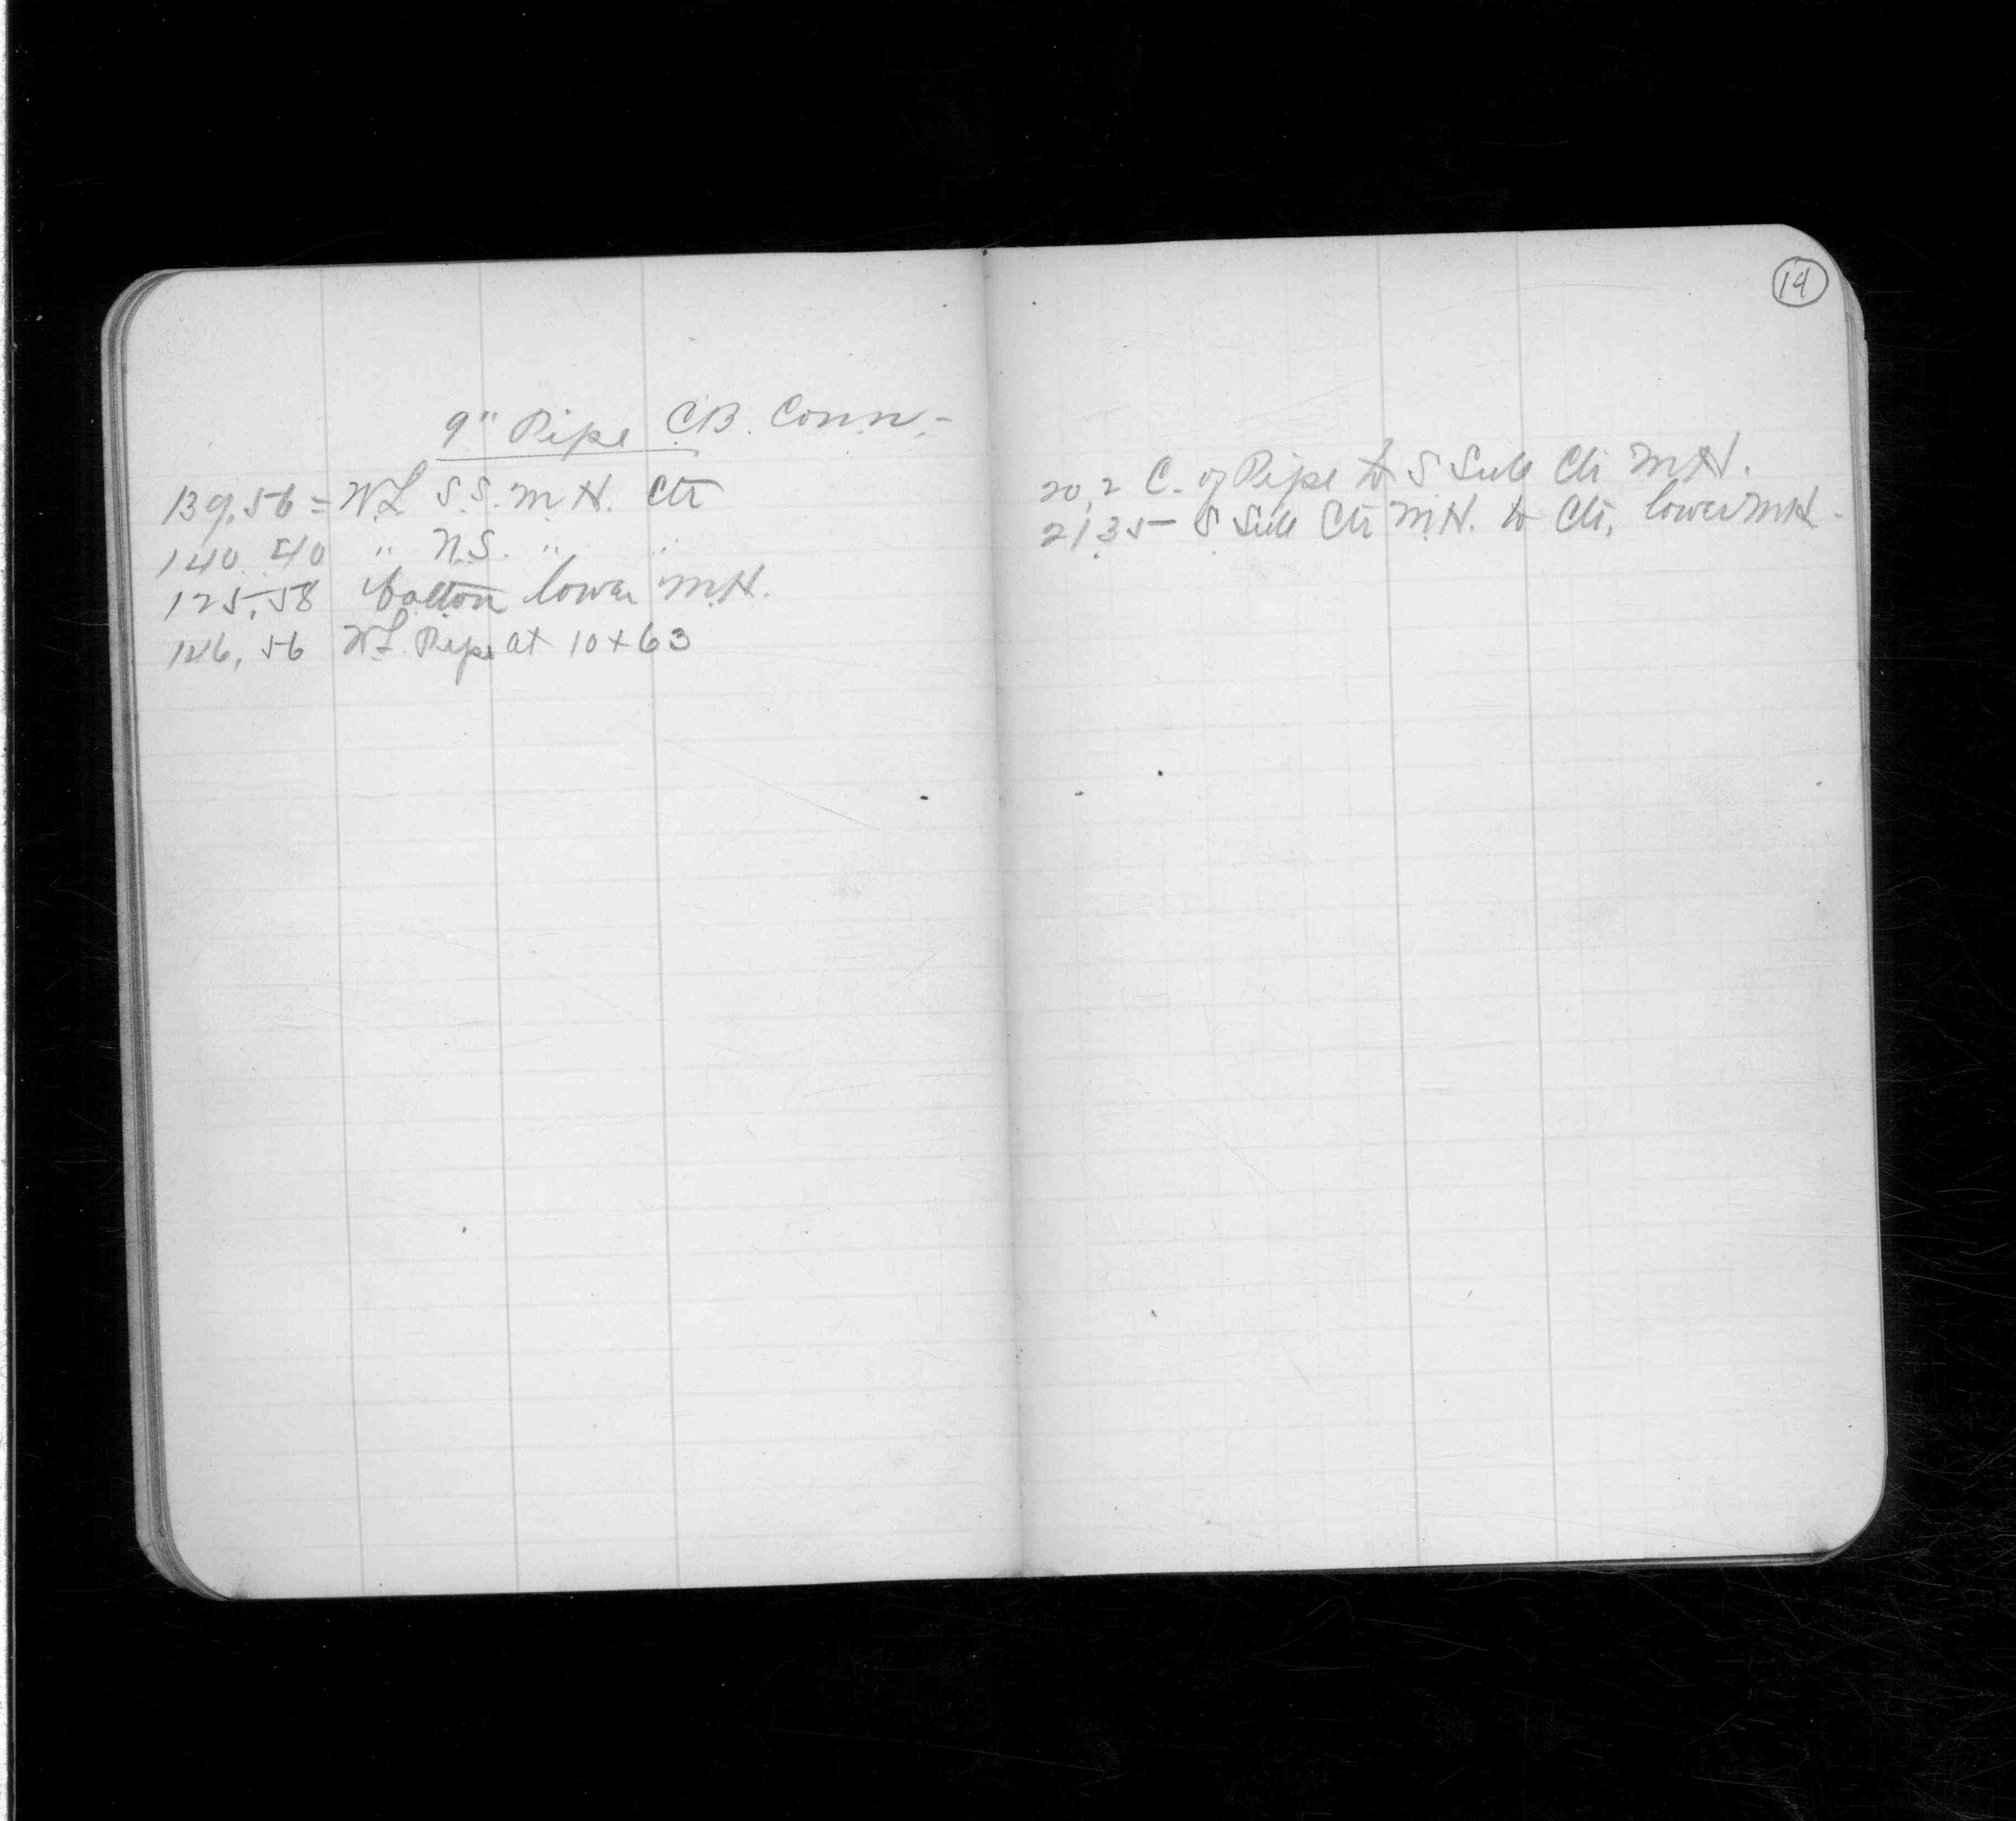 14
9" Pipe C.B. Conn.-
139.56 = W.L S.S. M.H. Ctr
140.40 " N.S. " "
125.58 bottom lower M.H.
146.56 W.L. Pipe at 10+63
20.2 C. of Pipe to S Side Ctr M.H.
21.35 - S Side Ctr M.H. to Ctr. lower M.H.